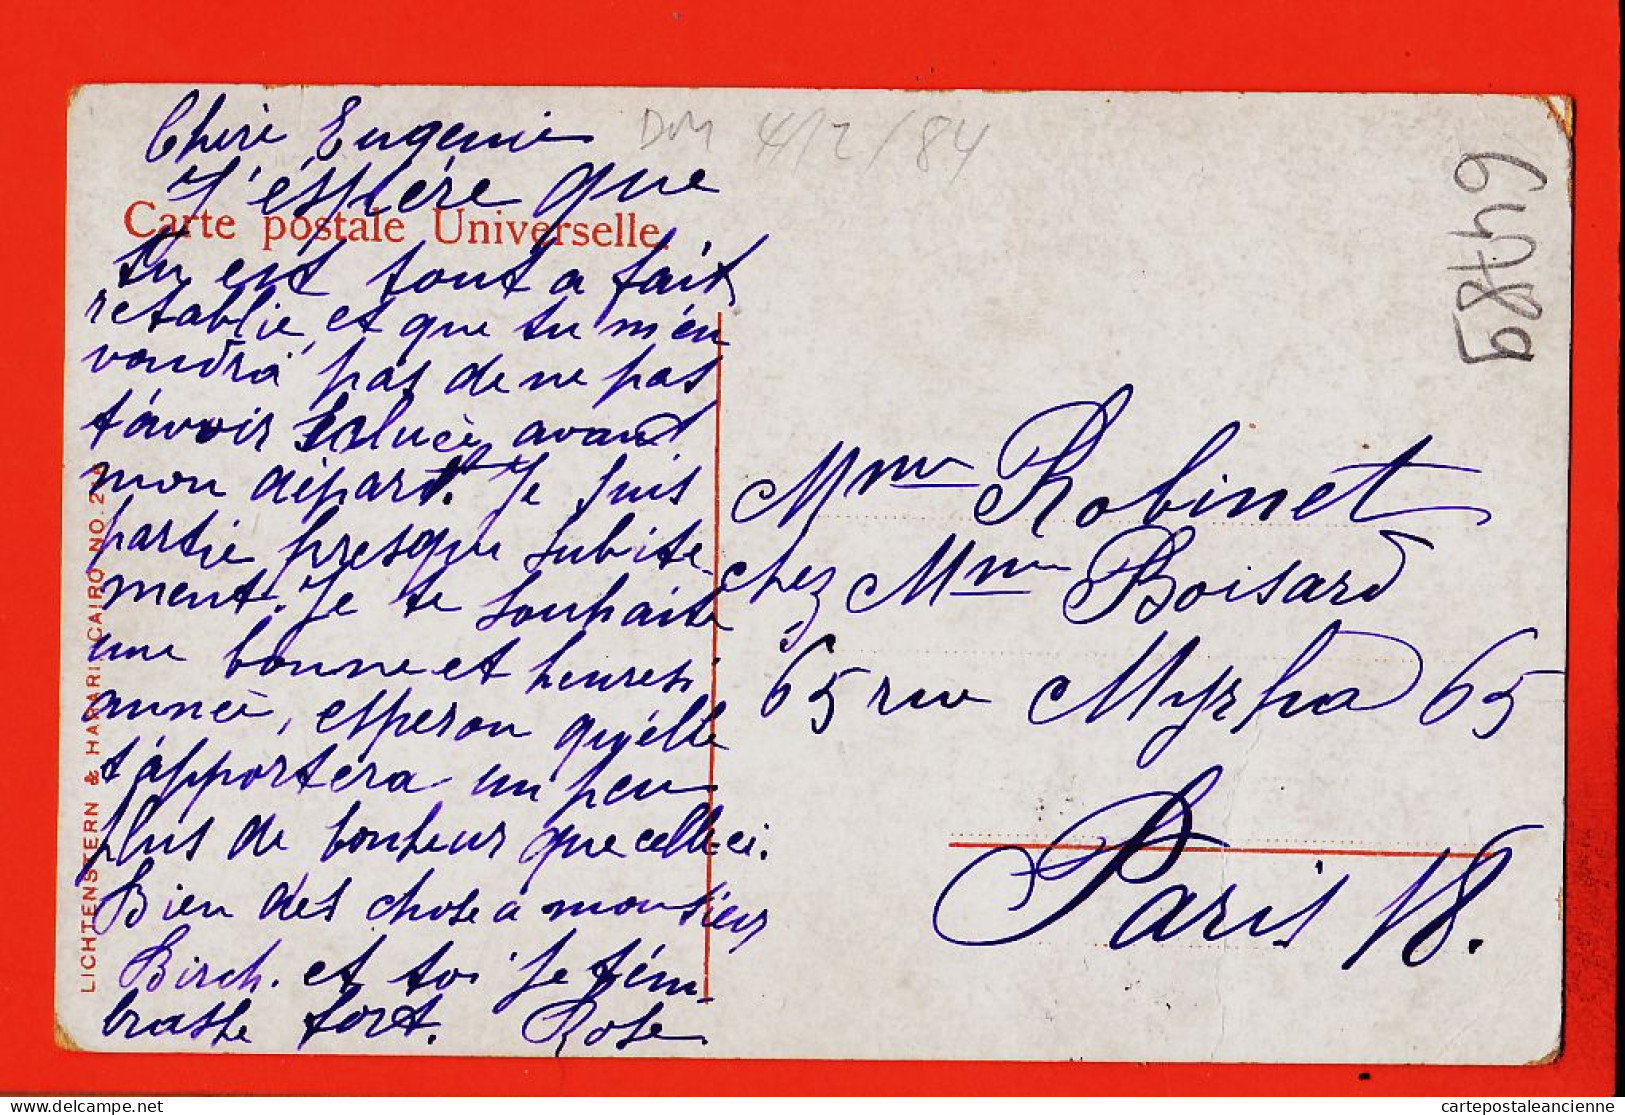 Cherè Eugenie
DM 4/2/84
J'éspère que
Carte postale Universelle.
tu est tout a fait
retablie, et que tu m'en
voudra pas de ne pas
t'avoir saluèe avant
mon dépard. Je suis
partie presque subite-
ment. Je te souhaite
une bonne et heuresi
annèe, esperon qu'elle
t'apportera un peu
plus de bonheur que celle-ci.
Bien des chose a monsieur
Birch. et toi je t'ém-
brasse fort. Rose
LICHTENSTERN & HARARI CAIRO NO. 2
64789
Mme Robinet
chez Mme Boisard
65 rue Myrha 65
Paris 18.
cartepostaleancienne.com